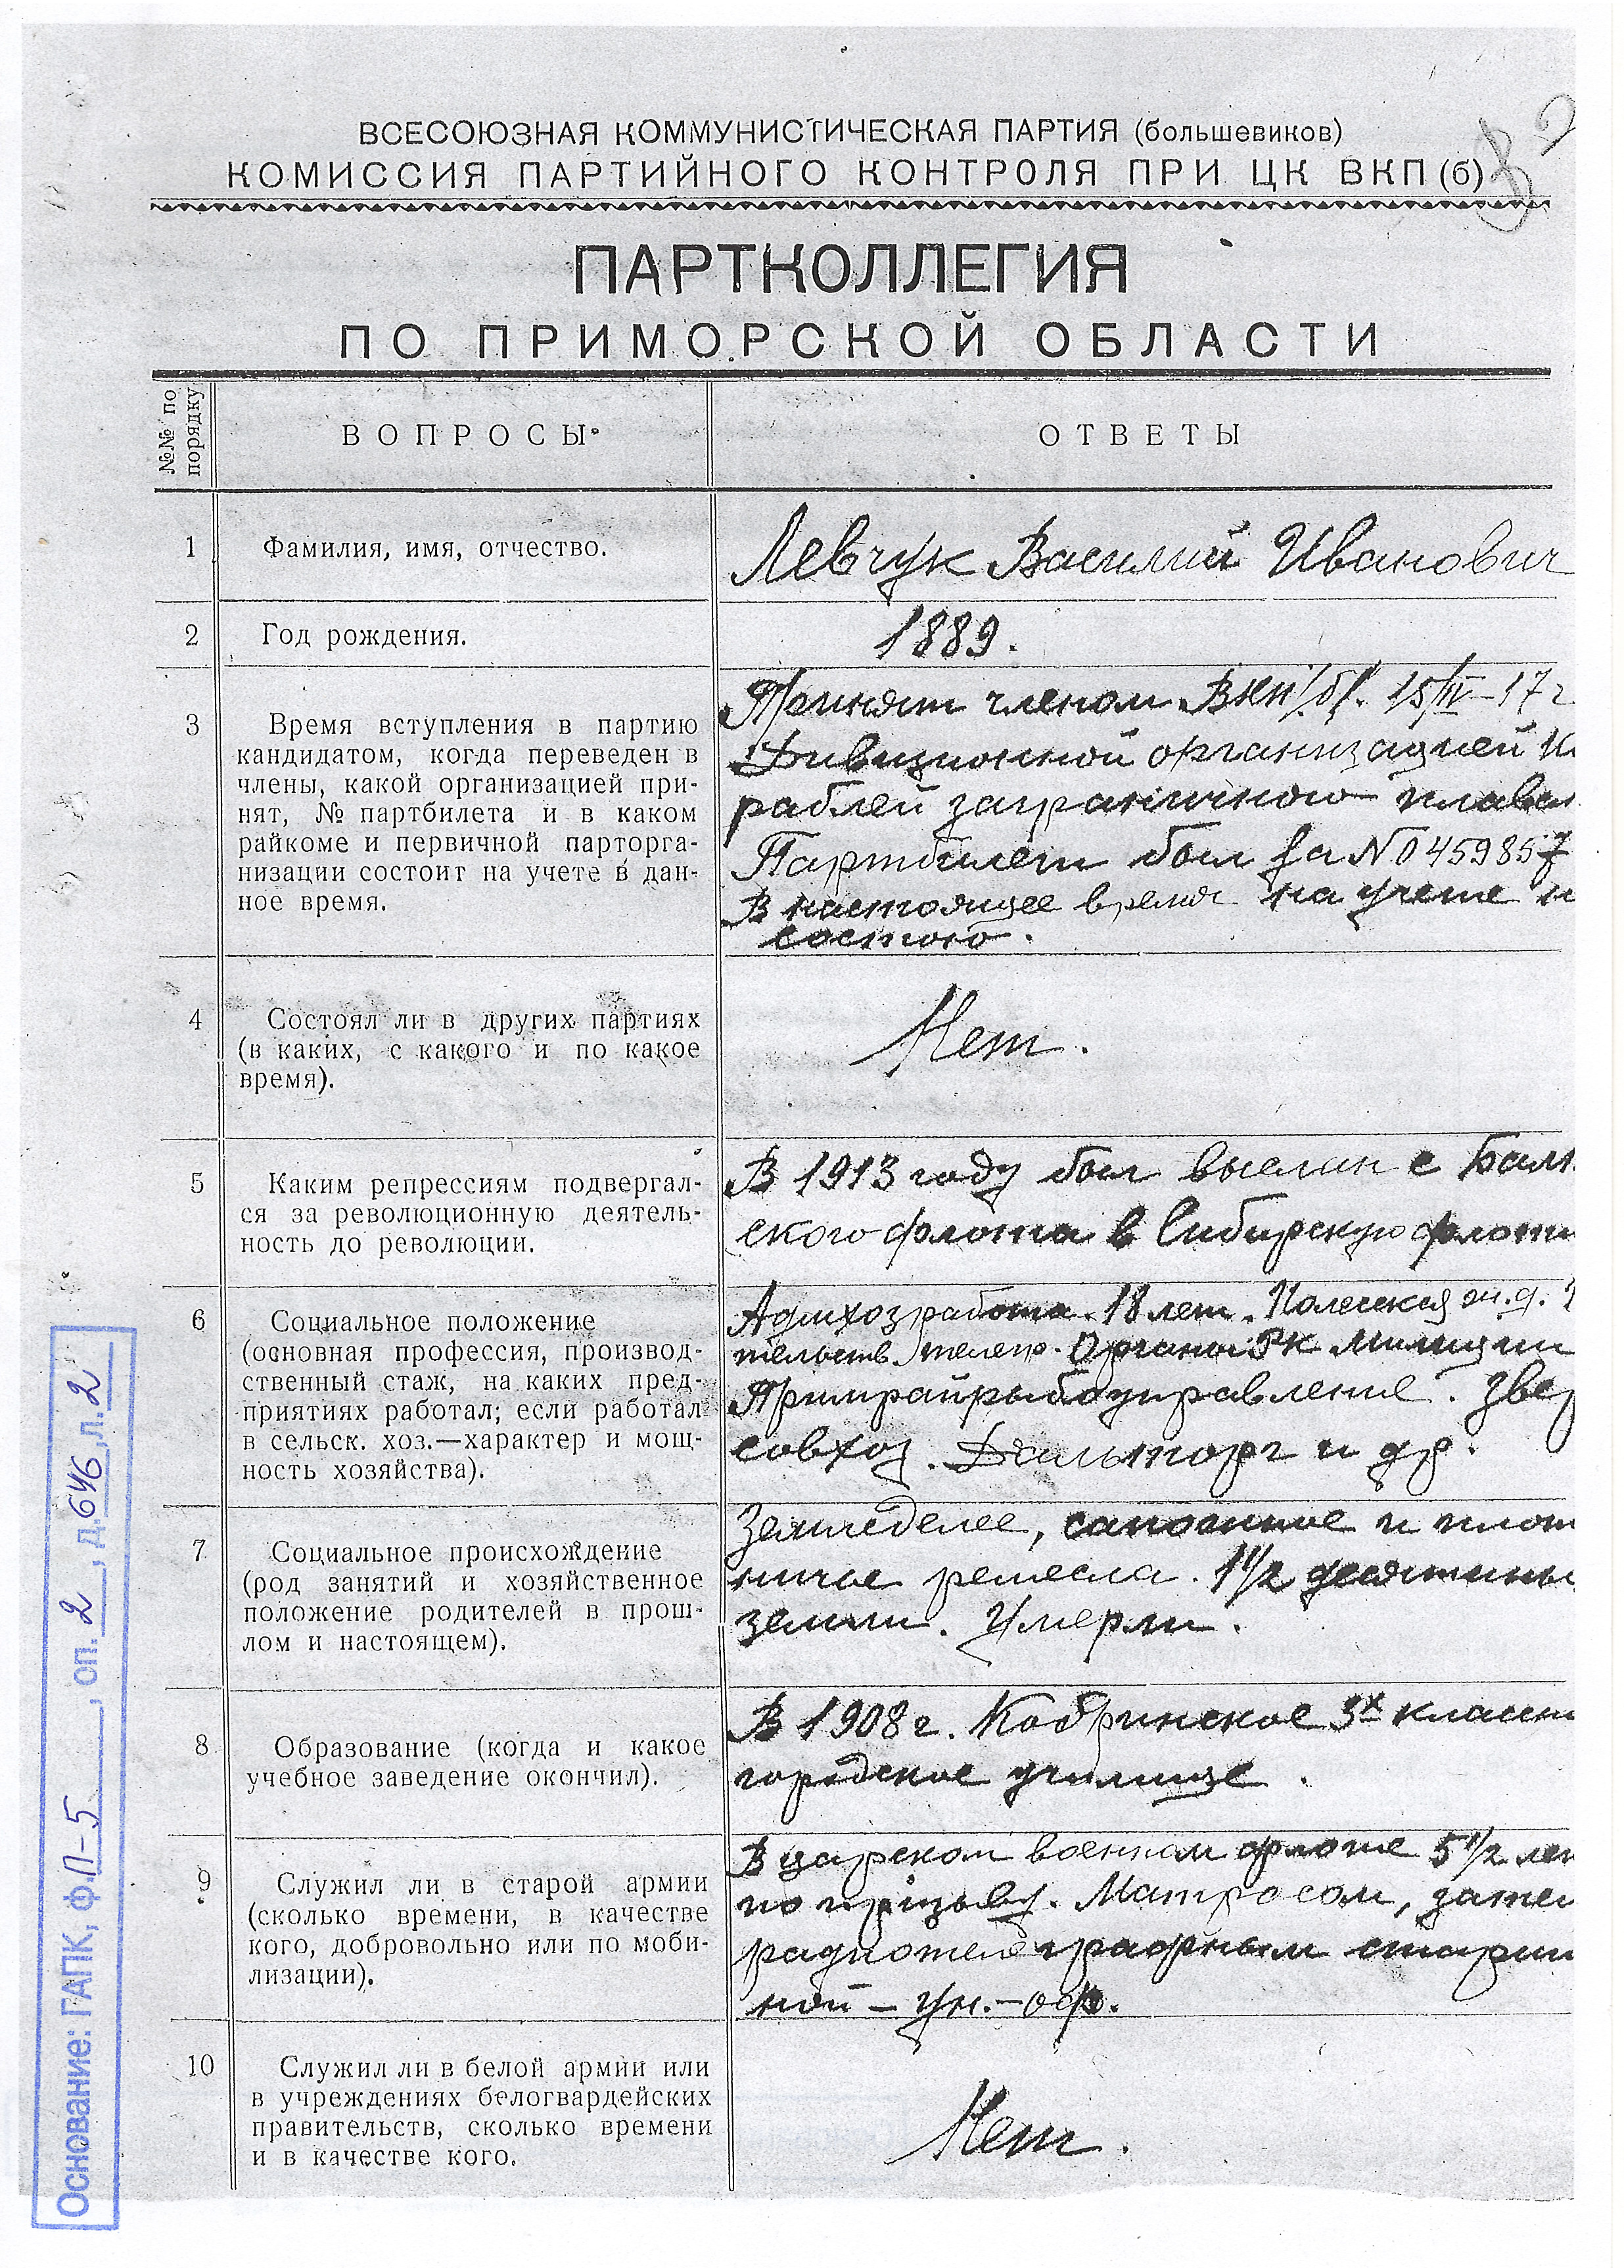 ВСЕСОЮЗНАЯ КОММУНИСТИЧЕСКАЯ ПАРТИЯ (большевиков)
КОМИССИЯ ПАРТИЙНОГО КОНТРОЛЯ ПРИ ЦК ВКП (б)
ПАРТКОЛЛЕГИЯ
ПО ПРИМОРСКОЙ ОБЛАСТИ
№№ по
порядку
ВОПРОСЫ
ОТВЕТЫ
1
Фамилия, имя, отчество.
Левчук Василий Иванович
2
Год рождения.
1889.
3
Время вступления в партию
кандидатом, когда переведен в
члены, какой организацией при-
нят, № партбилета и в каком
райкоме и первичной парторга-
низации состоит на учете в дан-
ное время.
Принят членом ВКП/б/. 15/IV-17 г
Дивизионной организацией к
раблей заграничного плаван
Партбилет был за № 0459857
В настоящее время на учете н
состою.
4
Состоял ли в других партиях
(в каких, с какого и по какое
время).
Нет.
5
Каким репрессиям подвергал-
ся за революционную деятель-
ность до революции.
В 1913 году был выслан с Балт
ского флота в Сибирскую флоти
6
Социальное положение
(основная профессия, производ-
ственный стаж, на каких пред-
приятиях работал; если работал
в сельск. хоз.—характер и мощ-
ность хозяйства).
Админхозработа. 18 лет. Полесская ж.д.
телеgr. Органы РК Милиции
Примрайрыбоуправление. Звер
совхоз. Дальторг и др.
7
Социальное происхождение
(род занятий и хозяйственное
положение родителей в прош-
лом и настоящем).
Земледелее, сапожное и плот
ничье ремесла. 1 1/2 десятины
земли. Умерли.
8
Образование (когда и какое
учебное заведение окончил).
В 1908 г. Кобринское 3х классн
городское училище.
9
Служил ли в старой армии
(сколько времени, в качестве
кого, добровольно или по моби-
лизации).
В царском военном флоте 5 1/2 лет
по призыву. Матросом, зате
радиотелеграфным старши
ной - ун.-оф.
10
Служил ли в белой армии или
в учреждениях белогвардейских
правительств, сколько времени
и в качестве кого.
Нет.
Основание: ГАПК, ф. П-5, оп. 2, д. 646, л. 2